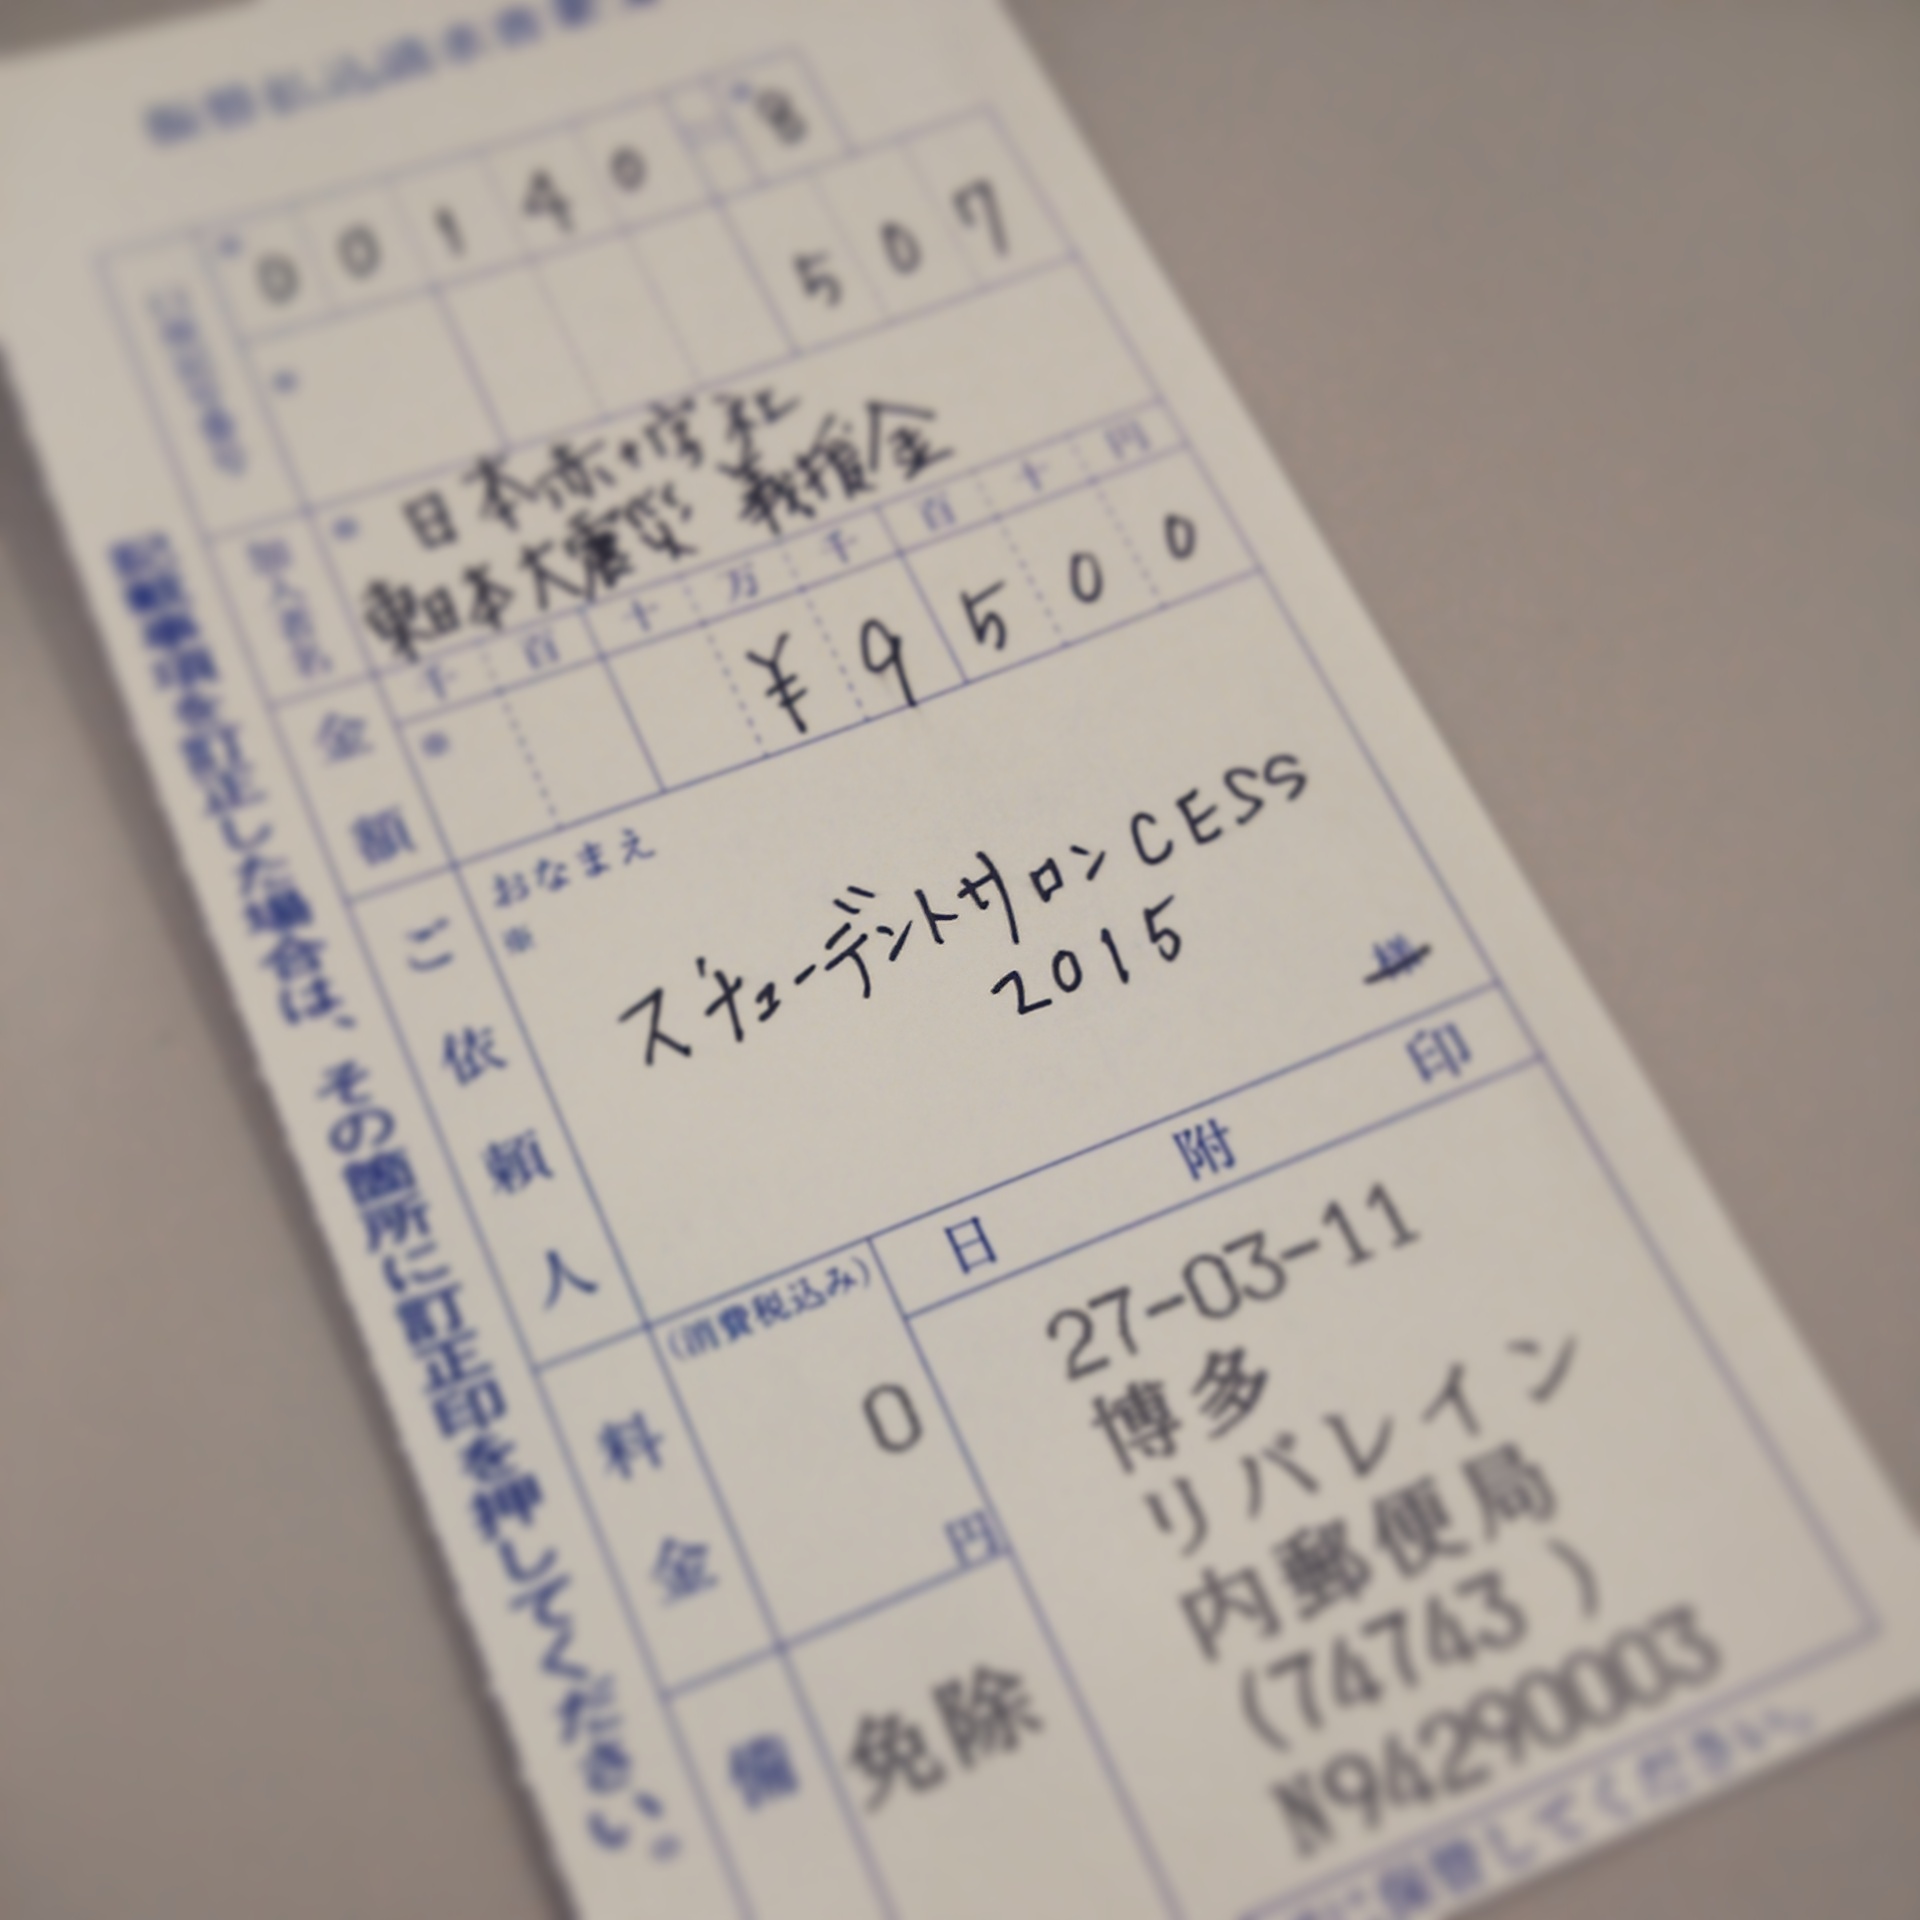 振替払込請求書兼受
口座記号番号
00140 8
507
加入者名
日本赤十字社
東日本大震災 義援金
金額
千百十万千百十円
¥9500
ご依頼人
おなまえ
※
スチューデントサロンCESS
2015
様
料金
(消費税込み)
0
円
日附印
27-03-11
博多
リバレイン
内郵便局
(74743 )
N94290003
備
免除
記載事項を訂正した場合は、その箇所に訂正印を押してください。
に保管してください。